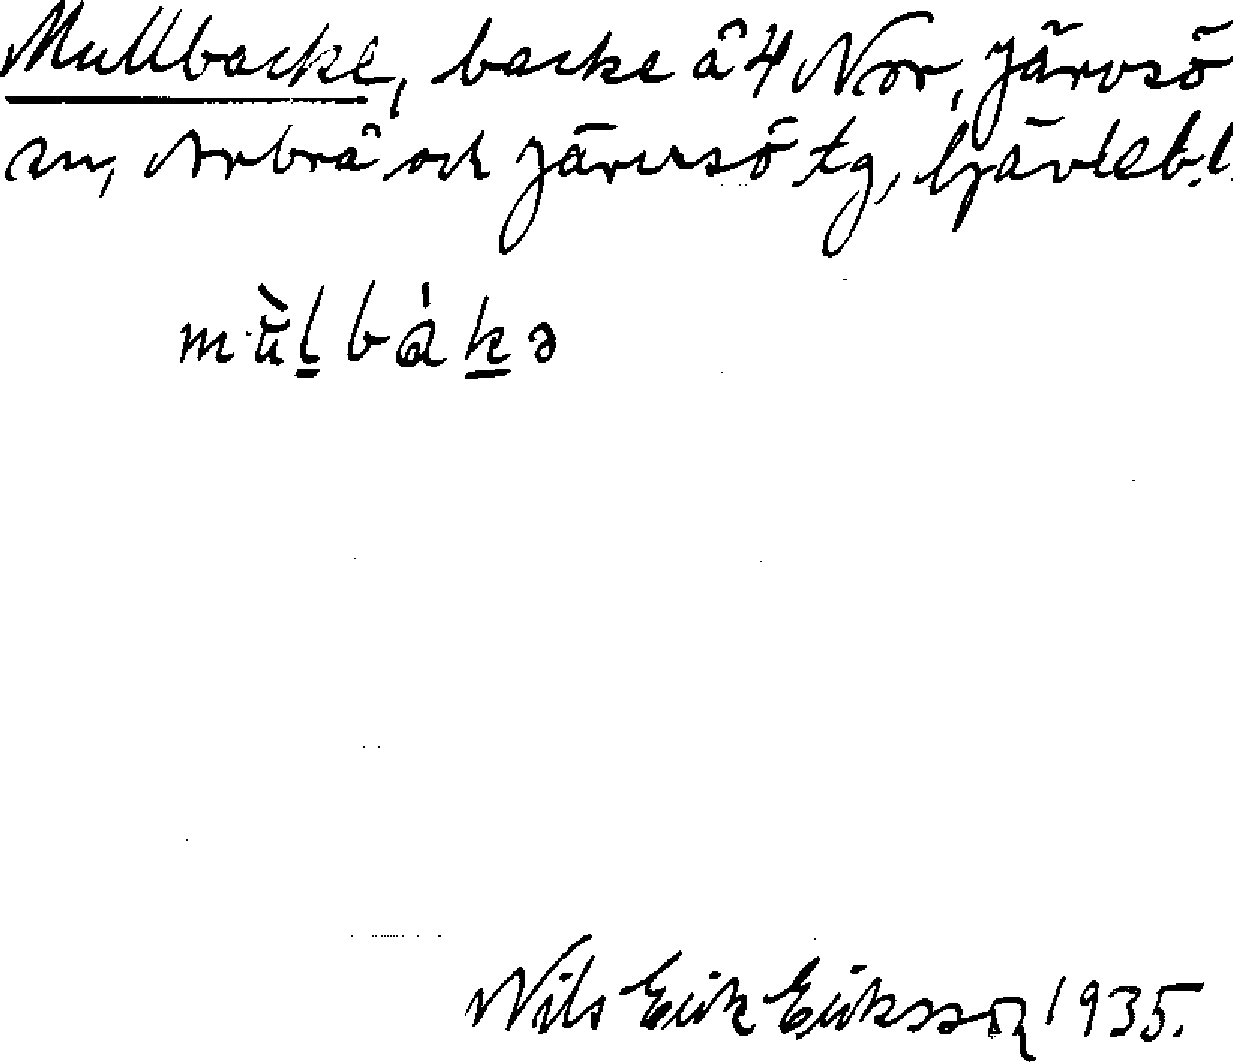 Mullbacke, backe å 4 Nor, Järvsö
sn, Arbrå och Järvsö tg, Gävleb.l.
mùl̠bák̠ə
Nils Erik Eriksson 1935.